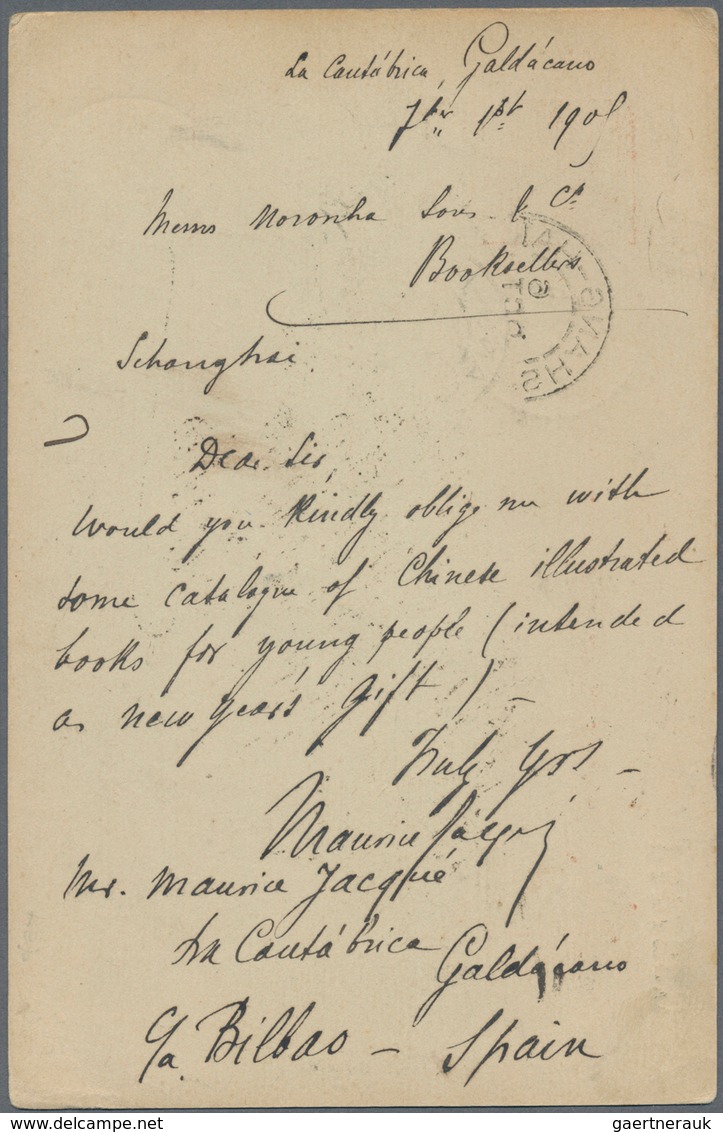 La Cantábrica, Galdácano
7br 1st 1905
Messrs Noronha Sons & Co
Booksellers
Schanghai
SHANGHAI
OCT
Dear Sir,
Would you kindly oblige me with
some catalogue of Chinese illustrated
books for young people (intended
as new year's gift) –
Truly Yrs –
Maurice Jacqué
Mr. Maurice Jacqué
La Cantábrica
Galdácano
c/a Bilbao – Spain
gaertnerauk